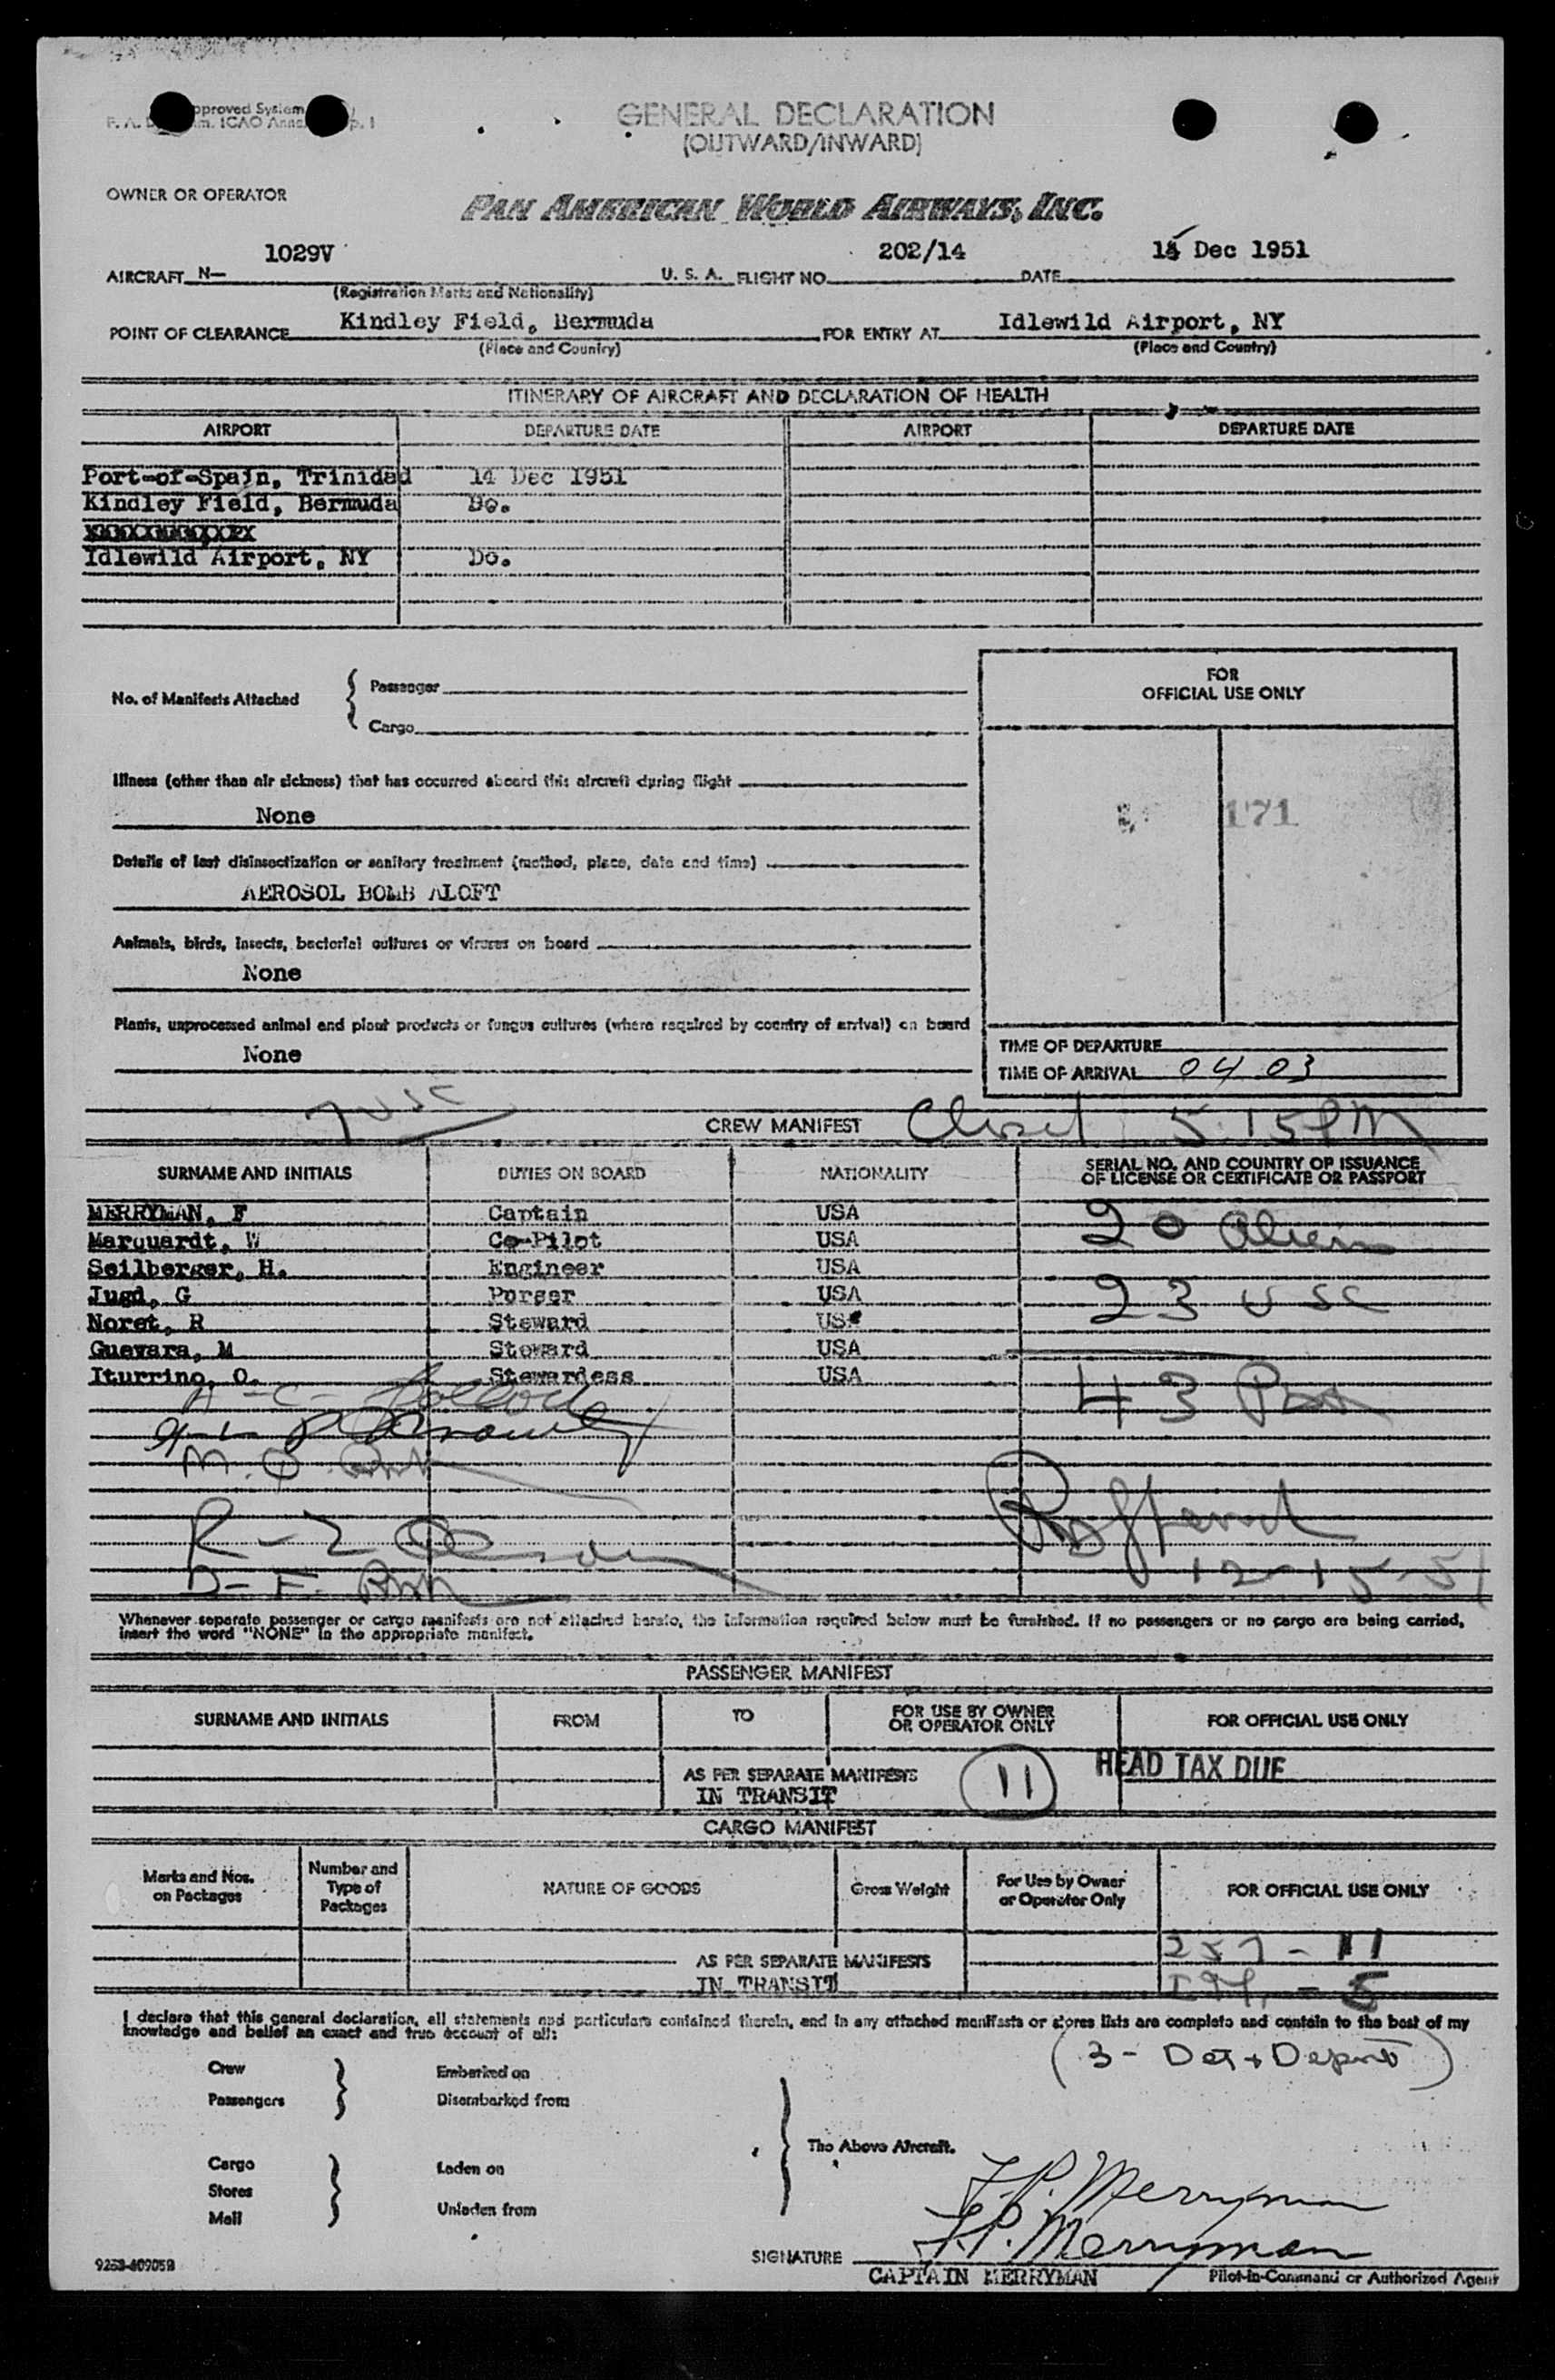 pproved System
GENERAL DECLARATION
(OUTWARD/INWARD)
OWNER OR OPERATOR
PAN AMERICAN WORLD AIRWAYS, INC.
AIRCRAFT N- 1029V U. S. A. FLIGHT NO. 202/14 DATE Dec 1951
(Registration Marks and Nationality)
POINT OF CLEARANCE Kindley Field, Bermuda FOR ENTRY AT Idlewild Airport, NY
(Place and Country) (Place and Country)
ITINERARY OF AIRCRAFT AND DECLARATION OF HEALTH
AIRPORT DEPARTURE DATE AIRPORT DEPARTURE DATE
Port-of-Spain, Trinidad 14 Dec 1951
Kindley Field, Bermuda Do.
Idlewild Airport, NY Do.
FOR
OFFICIAL USE ONLY
No. of Manifests Attached { Passenger
Cargo
Illness (other than air sickness) that has occurred aboard this aircraft during flight
None
171
Details of last disinsectization or sanitary treatment (method, place, date and time)
AEROSOL BOMB ALOFT
Animals, birds, insects, bacterial cultures or viruses on board
None
Plants, unprocessed animal and plant products or fungus cultures (where required by country of arrival) on board
None
TIME OF DEPARTURE
TIME OF ARRIVAL 04 03
7 USC
CREW MANIFEST Closed 5:15 PM
SURNAME AND INITIALS DUTIES ON BOARD NATIONALITY SERIAL NO. AND COUNTRY OF ISSUANCE
OF LICENSE OR CERTIFICATE OR PASSPORT
MERRYMAN, F Captain USA
Marquardt, W Co-Pilot USA 20 Aliens
Seilberger, H. Engineer USA
Jugd, G Purser USA 23 USC
Noret, R Steward US
Guevara, M Steward USA
Iturrino, O. Stewardess USA
43 Pax
12-15-51
Whenever separate passenger or cargo manifests are not attached hereto, the information required below must be furnished. If no passengers or no cargo are being carried,
insert the word "NONE" in the appropriate manifest.
PASSENGER MANIFEST
SURNAME AND INITIALS FROM TO FOR USE BY OWNER
OR OPERATOR ONLY FOR OFFICIAL USE ONLY
AS PER SEPARATE MANIFESTS 11 HEAD TAX DUE
IN TRANSIT
CARGO MANIFEST
Marks and Nos.
on Packages Number and
Type of
Packages NATURE OF GOODS Gross Weight For Use by Owner
or Operator Only FOR OFFICIAL USE ONLY
257 - 11
AS PER SEPARATE MANIFESTS
IN TRANSIT - 5
I declare that this general declaration, all statements and particulars contained therein, and in any attached manifests or stores lists are complete and contain to the best of my
knowledge and belief an exact and true account of all:
(3 - Det + Deport)
Crew Embarked on
Passengers Disembarked from
The Above Aircraft.
Cargo Laden on
Stores
Mail Unladen from
F.P. Merryman
SIGNATURE F.P. Merryman
CAPTAIN MERRYMAN Pilot-in-Command or Authorized Agent